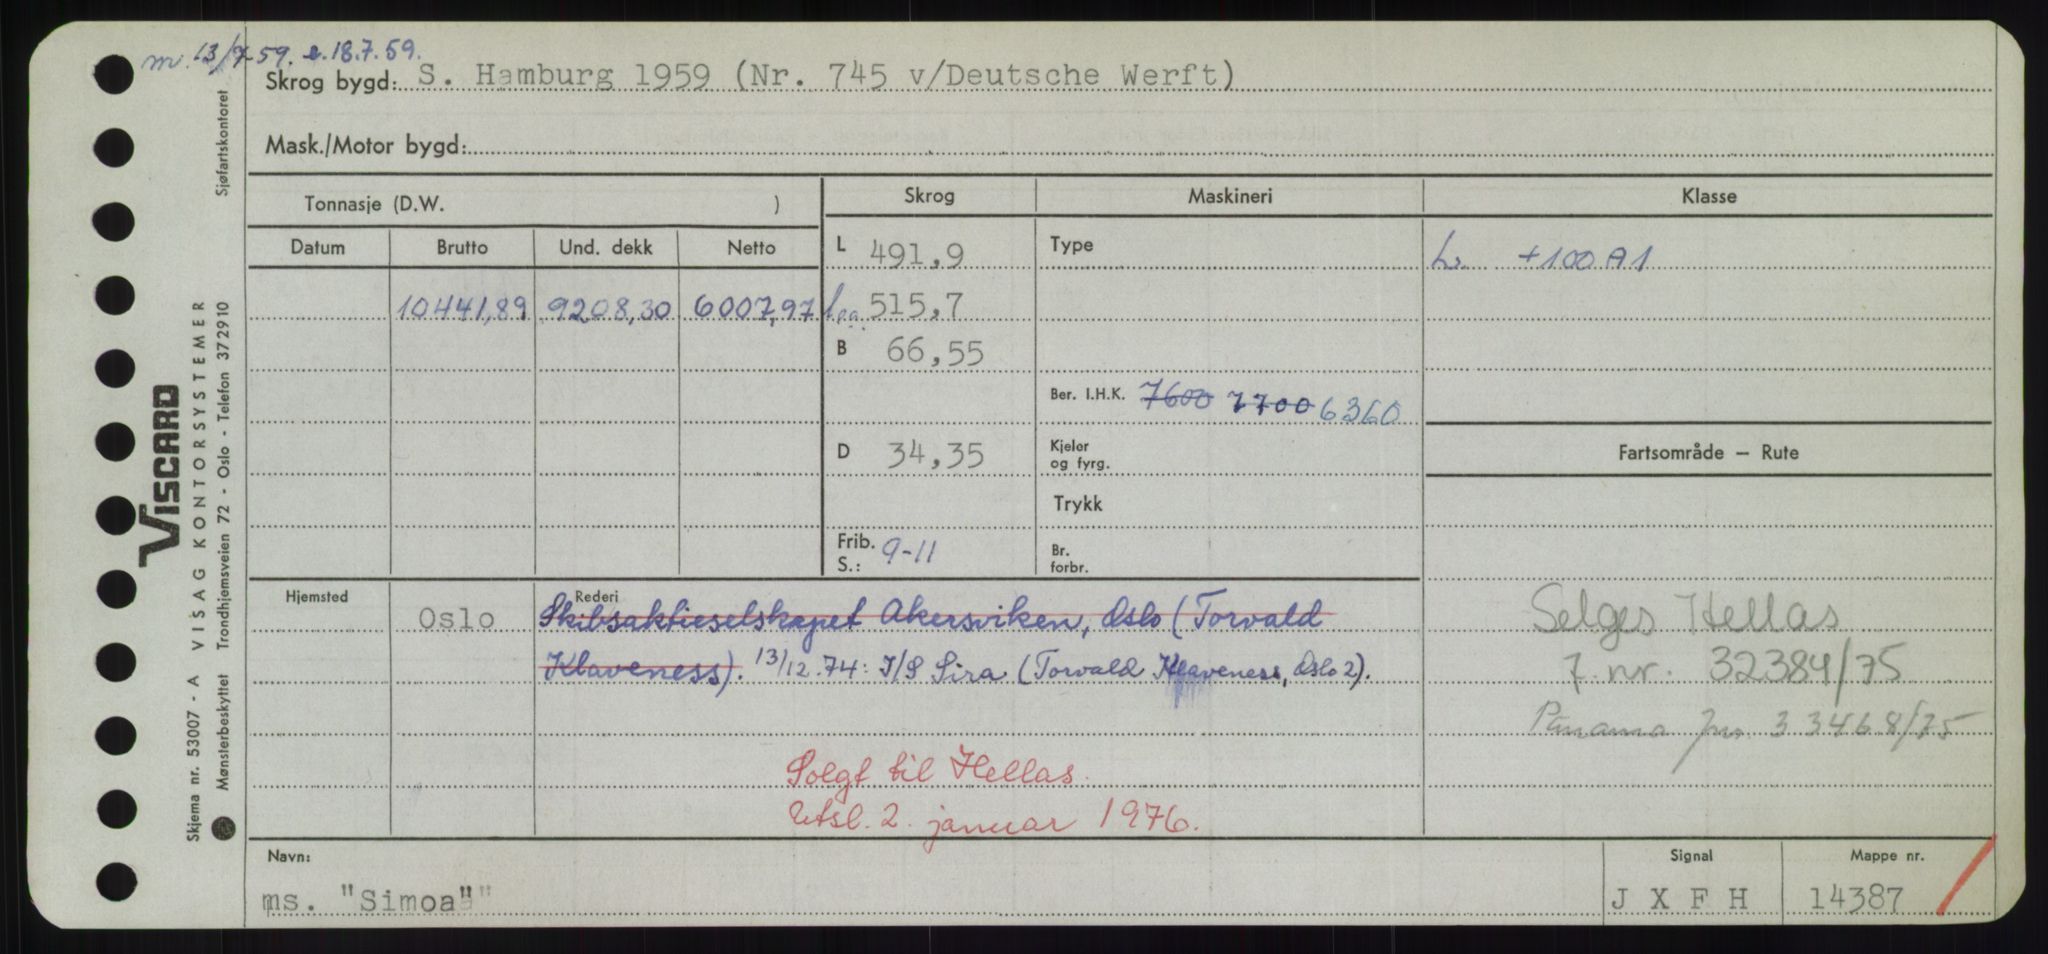 m. 13/7-59. e. 18.7.59.
Skrog bygd: S. Hamburg 1959 (Nr. 745 v/Deutsche Werft)
Mask./Motor bygd:
Tonnasje (D.W. )
Skrog
Maskineri
Klasse
Datum
Brutto
Und. dekk
Netto
L 491,9
Type
L. +100 A1
10441,89 9208,30 6007,97
515,7
B 66,55
Ber. I.H.K. 7600 7700 6360
D 34,35
Kjeler
og fyrg.
Fartsområde – Rute
Trykk
Frib.
S.: 9-11
Br.
forbr.
Hjemsted
Oslo
Rederi
Skibsaktieselskapet Akersviken, Oslo (Torvald
Klaveness). 13/12.74: I/S Sira (Torvald Klaveness, Oslo 2).
Selges Hellas
7. nr. 32384/75
Panama jnr. 33468/75
Solgt til Hellas.
Utsl. 2. januar 1976.
Navn:
ms. "Simoa"
Signal
J X F H
Mappe nr.
14387
Sjøfartskontoret
VISCARD
VISAG KONTORSYSTEMER
Trondhjemsveien 72 - Oslo - Telefon 372910
Skjema nr. 53007 - A
Mønsterbeskyttet